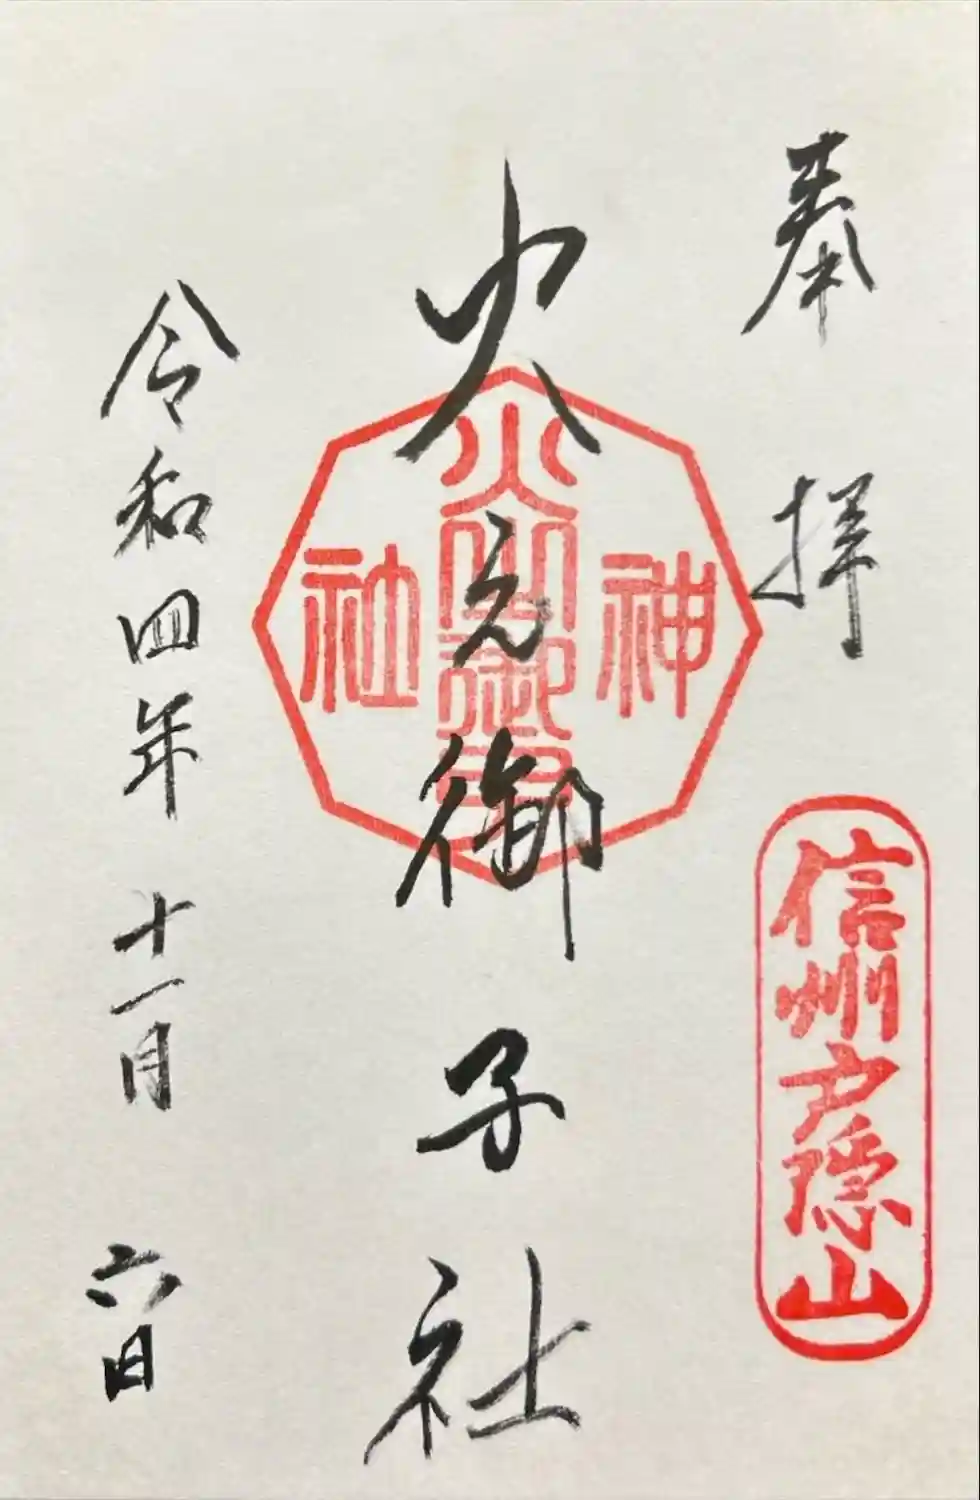 奉拝
信州戸隠山
火之御子社
神
火之御子
社
令和四年十一月六日